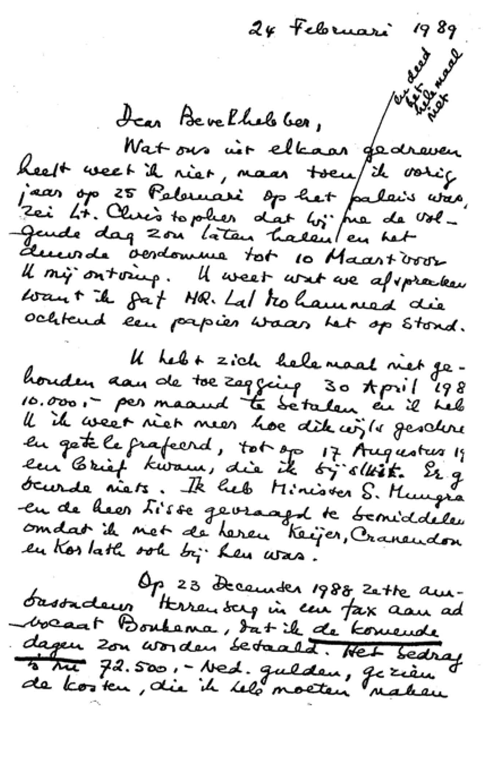 24 Februari 1989
en deed
het
helemaal
niet
Dear Bevelhebber,
Wat ons uit elkaar gedreven
heeft weet ik niet, maar toen ik vorig
jaar op 25 Februari op het paleis was,
zei Lt. Christopher dat hij me de vol-
gende dag zou laten halen en het
duurde verdomme tot 10 Maart voor
U mij ontving. U weet wat we afspraken
want ik gaf HR. Lal Mohammed die
ochtend een papier waar het op stond.
U hebt zich helemaal niet ge-
houden aan de toezegging 30 April 198
10.000,- per maand te betalen en ik heb
U ik weet niet meer hoe dikwijls geschre
en getelegrafeerd, tot op 17 Augustus 19
een brief kwam, die ik bijsluit. Er g
beurde niets. Ik heb Minister S. Mungra
en de heer gevraagd te bemiddelen
omdat ik met de heren Keijer, Cranendon
en Korlath ook bij hen was.
Op 23 December 1988 zette am-
bassadeur Herrenberg in een fax aan ad
vocaat Bonkema, dat ik de komende
dagen zou worden betaald. Het bedrag
is nu 72.500,- Ned. gulden, gezien
de kosten, die ik heb moeten maken